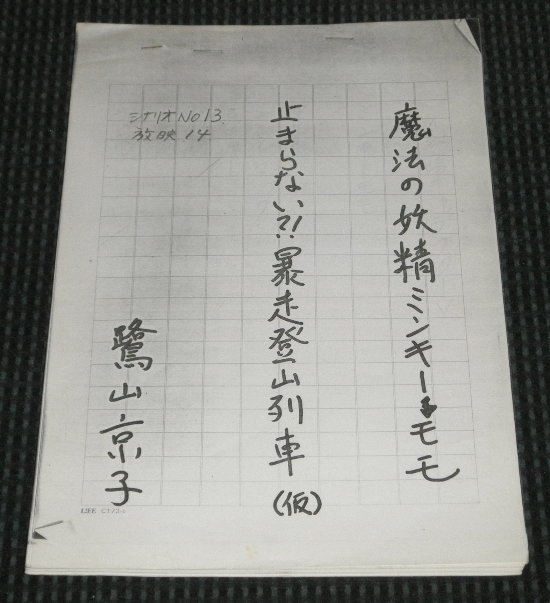 魔法の妖精ミンキー・モモ
止まらない?!暴走登山列車(仮)
シナリオNo13
放映14
鷺山京子
LIFE C173